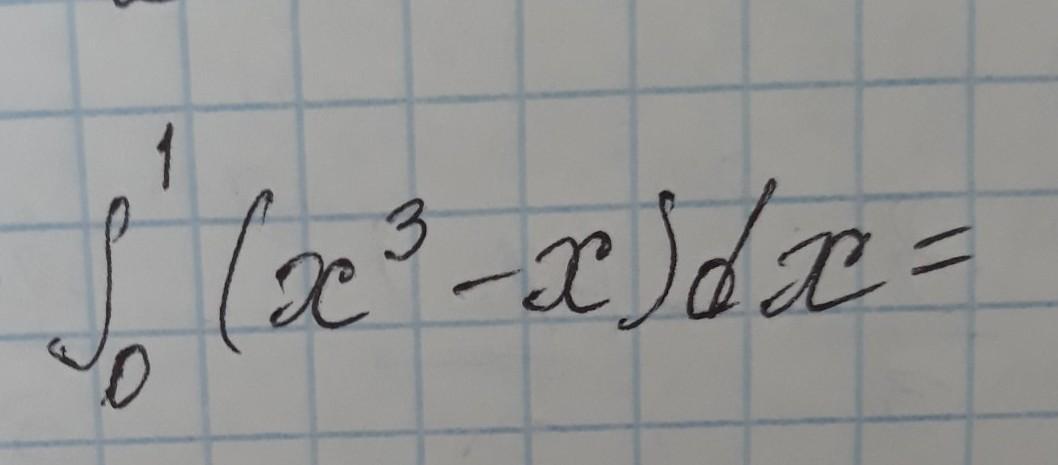 ∫₀¹ (x³ - x)dx =